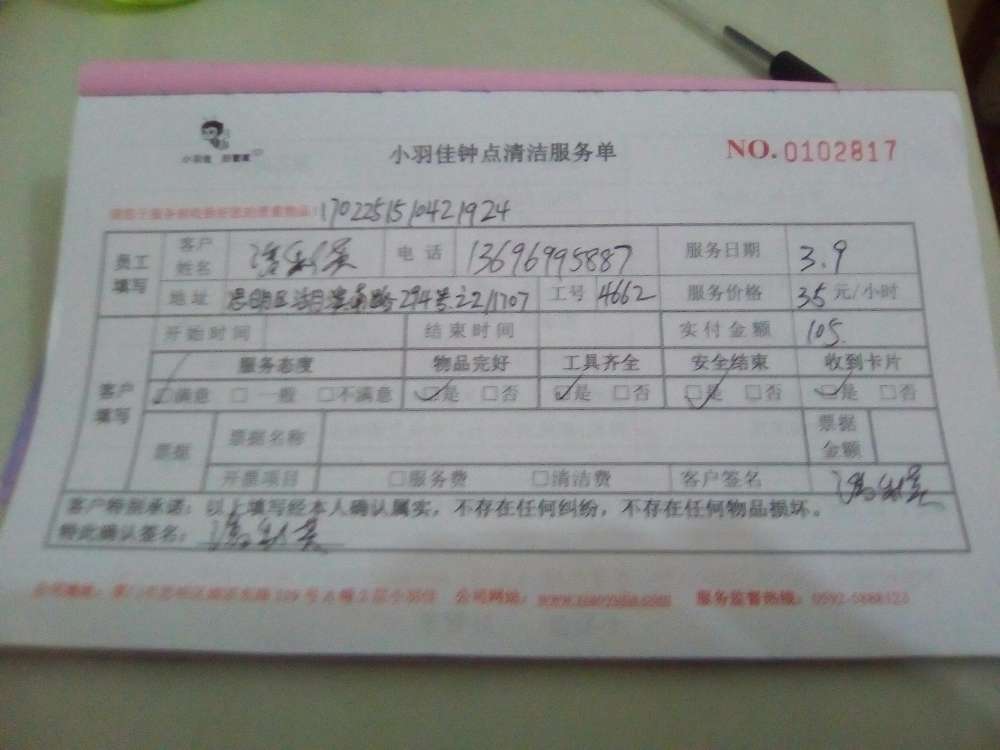 小羽佳
小羽佳钟点清洁服务单
NO.0102817
1702251510421924
员工填写 客户姓名 电话 13696995887 服务日期 3.9
地址 思明区 294号 22/1707 工号 4662 服务价格 35元/小时
开始时间 结束时间 实付金额 105.
客户填写 服务态度 物品完好 工具齐全 安全结束 收到卡片
满意 一般 不满意 是 否 是 否 是 否 是 否
票据 票据名称 票据金额
开票项目 服务费 清洁费 客户签名
客户特别承诺：以上填写经本人确认属实，不存在任何纠纷，不存在任何物品损坏。
特此确认签名：
公司地址： 公司网站： 服务监督热线：